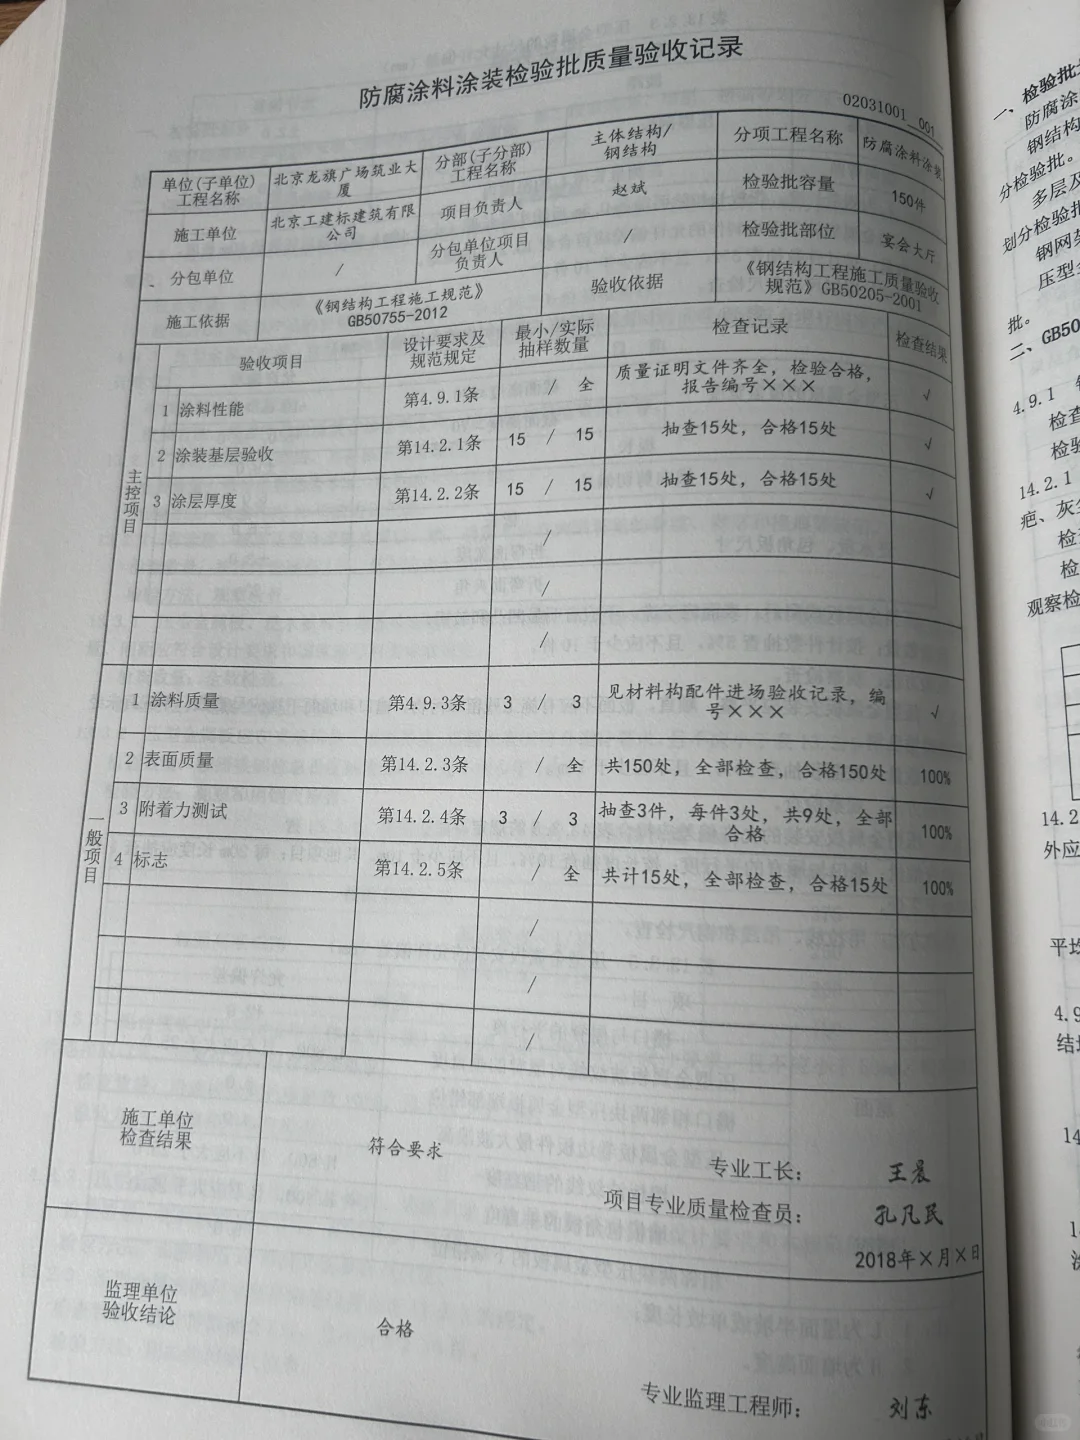 防腐涂料涂装检验批质量验收记录
02031001 001
单位(子单位)工程名称 北京龙旗广场筑业大厦 分部(子分部)工程名称 主体结构/钢结构 分项工程名称 防腐涂料涂装
施工单位 北京工建标建筑有限公司 项目负责人 赵斌 检验批容量 150件
分包单位 / 分包单位项目负责人 / 检验批部位 宴会大厅
施工依据 《钢结构工程施工规范》GB50755-2012 验收依据 《钢结构工程施工质量验收规范》GB50205-2001
验收项目 设计要求及规范规定 最小/实际抽样数量 检查记录 检查结果
主控项目
1 涂料性能 第4.9.1条 / 全 质量证明文件齐全，检验合格，报告编号××× √
2 涂装基层验收 第14.2.1条 15 / 15 抽查15处，合格15处 √
3 涂层厚度 第14.2.2条 15 / 15 抽查15处，合格15处 √
/
/
/
一般项目
1 涂料质量 第4.9.3条 3 / 3 见材料构配件进场验收记录，编号××× √
2 表面质量 第14.2.3条 / 全 共150处，全部检查，合格150处 100%
3 附着力测试 第14.2.4条 3 / 3 抽查3件，每件3处，共9处，全部合格 100%
4 标志 第14.2.5条 / 全 共计15处，全部检查，合格15处 100%
/
/
/
施工单位检查结果
符合要求
专业工长： 王晨
项目专业质量检查员： 孔凡民
2018年×月×日
监理单位验收结论
合格
专业监理工程师： 刘东
一、检验批
防腐涂
钢结构
分检验批。
多层及
划分检验批
钢网架
压型金
批。
二、GB50
4.9.1
检查
检验
14.2.1
疤、灰
检查
检
观察检
14.2
外应
平均
4.9
结
14